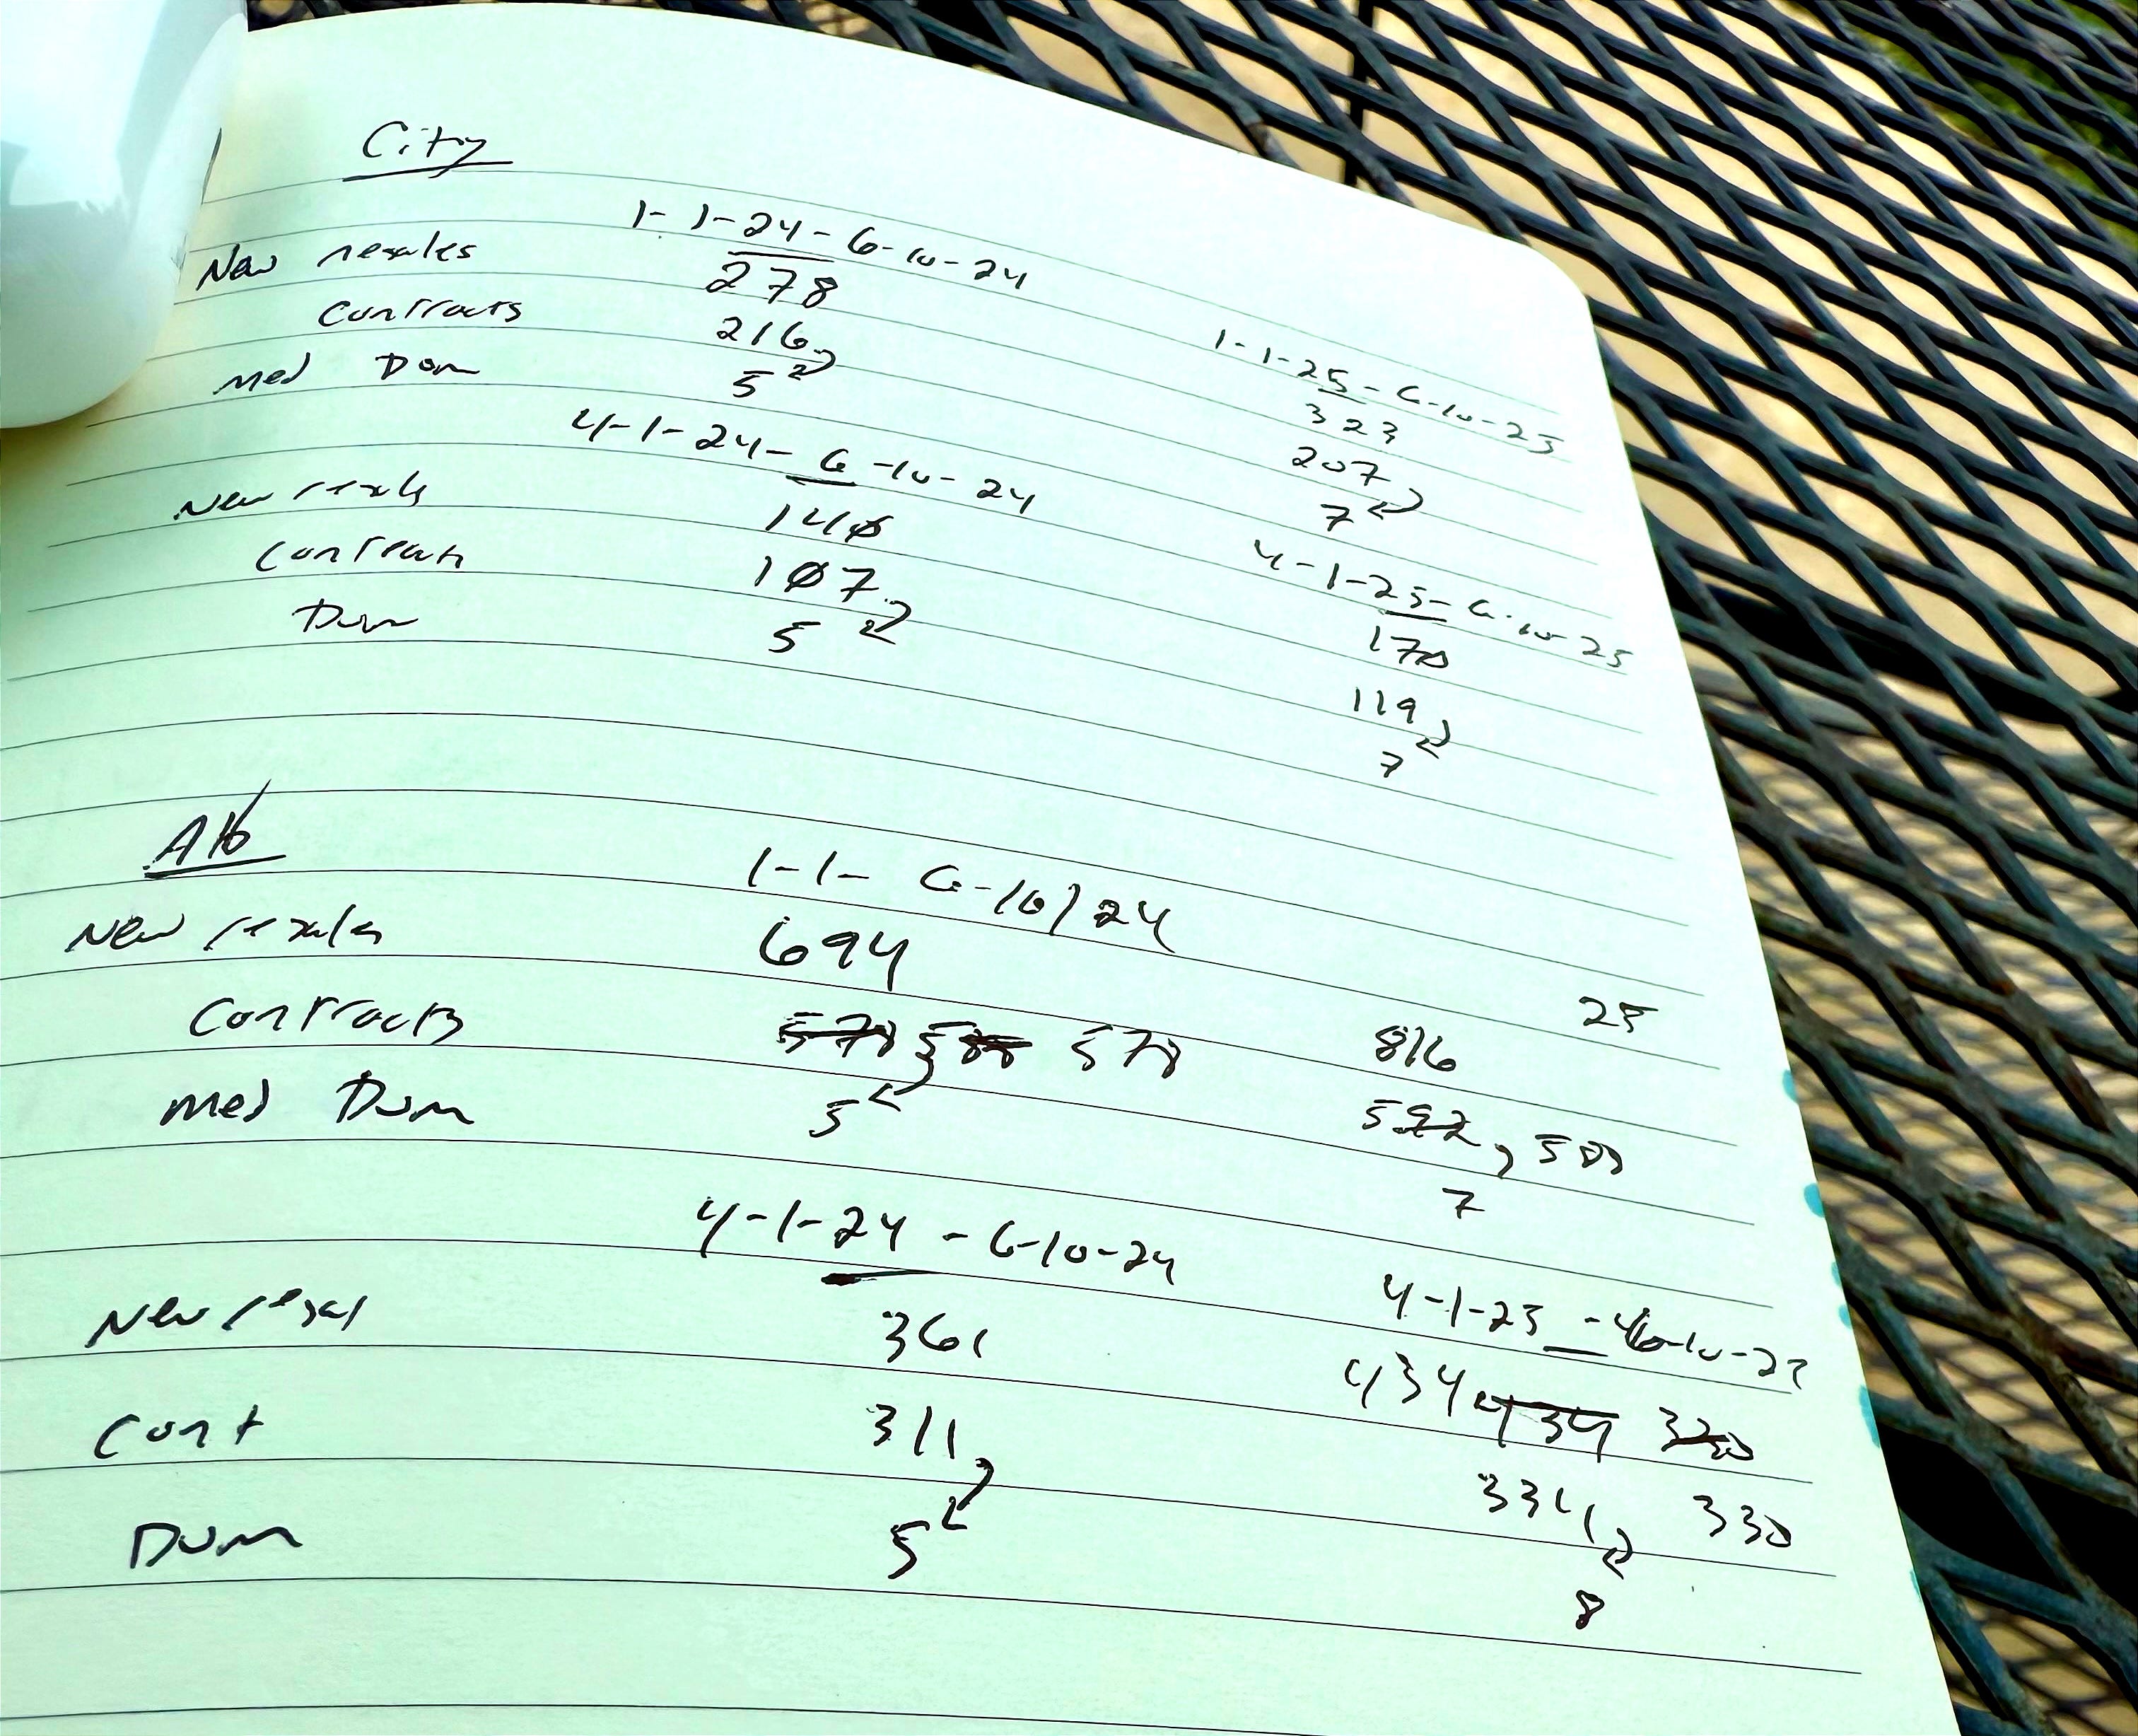 City
1-1-24-6-10-24
New resales 278
Contracts 216
Med Dom 5
1-1-25-6-10-25
323
207
7
4-1-24-6-10-24
New resals
Contracts 107
Dom 5
4-1-25-6-10-25
170
119
7
Alb
1-1-6-10/24 25
New resales 694 816
Contracts 578 578
Med Dom 5 7
4-1-24-6-10-24 4-1-25 -6-10-25
New resal 361 434 434
Cont 311 331 330
Dom 5 8